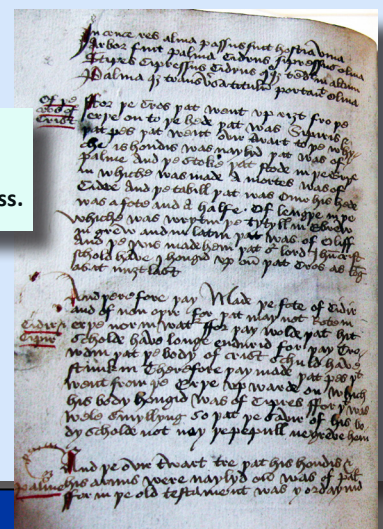 ss.
of þe
Crist
In cruce res alma passus fuit hostia una
Arbor fuit palma Cidrus sipressus oliva
Stipes Cipressus Cidrus
Palma
For þe Cros þat went up riȝt fro þe
erþe on to þe hede þat was Sipris &
þat pes þat went over thwart to þe
he his hondis was naylid þat was of
palme and þe stoke þat stode in þe
in whiche was made A mortes was of
Cidre and þe tabill þat was Ovir his hede
was a fote and a halfe of lengþe in þe
whiche was wrytin þe tytyll in Ebrew
in grew and in latin þat was of Oliff
And þe Jewis made hem þat
schold have hongid up on þat Cros as long
as it miȝt last
And þerefore þay Made þe fote of Cidir
and of non oþir for þat may not Rote in
Cidir erþe nor in wat for þay wolde þat hit
scholde have longe endurid for þay
þat þe body of crist schuld have
stunk in Therefore þay made þat pes þat
went from þe Erþe upwarde on which
his body hongid was of Cipres for hit was
wele smyllyng so þat þe savor of his bo
dy scholde not ney þe pepill
And þe ovir twart tre þat his hondis &
Palme his armis were naylyd on was of pal
For in þe old testament was yordaynid